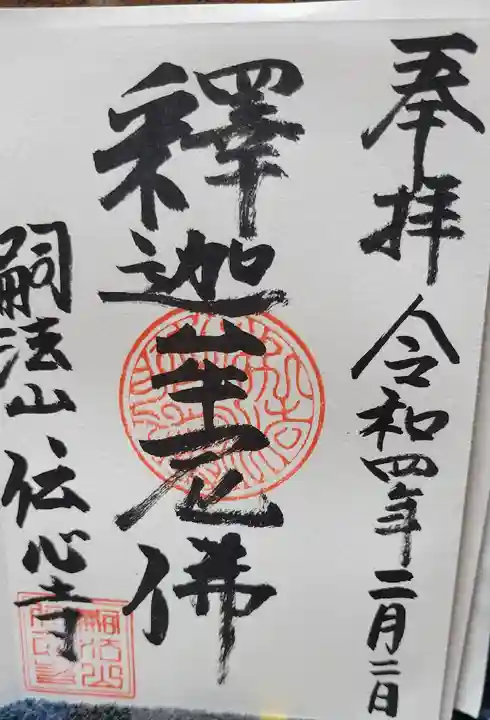 奉拝 令和四年二月二日
釋迦牟尼佛
嗣法山 伝心寺